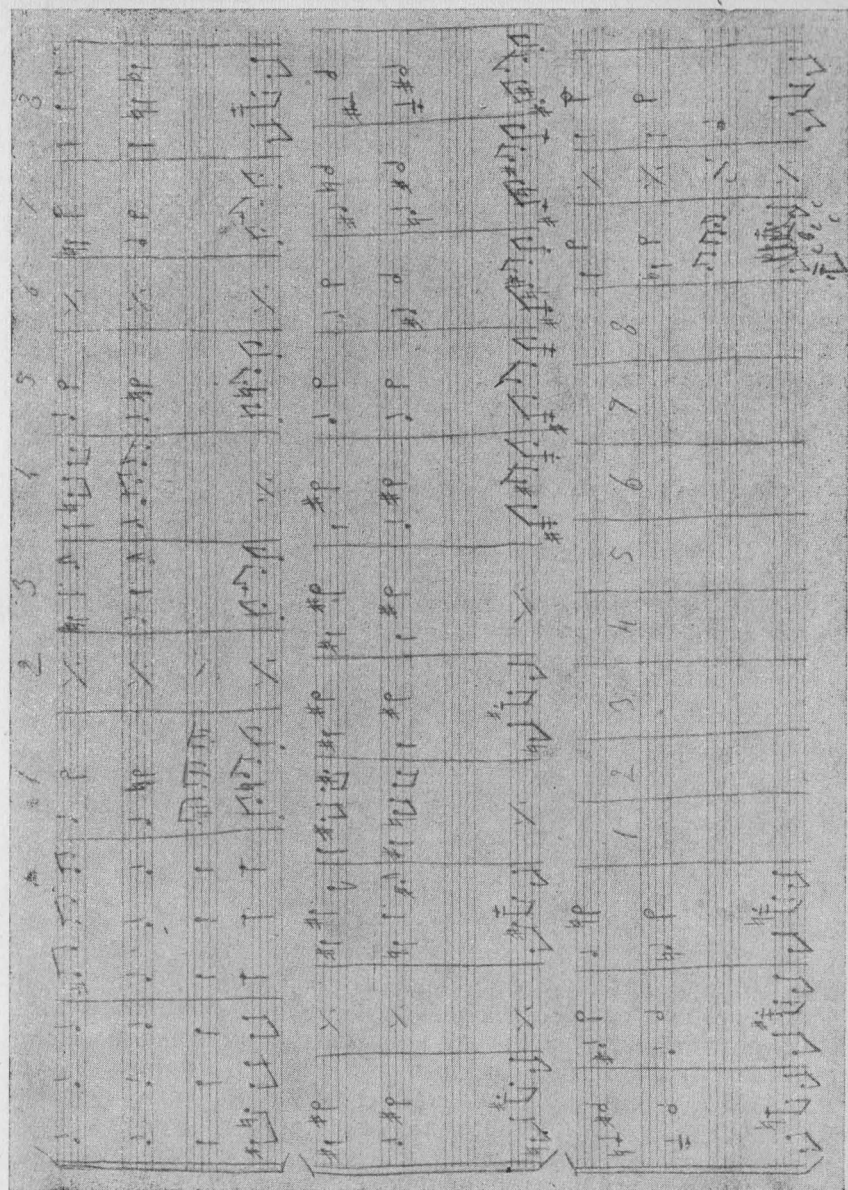 1 2 3 4 5 6 7 8
1 2 3 4 5 6 7 8